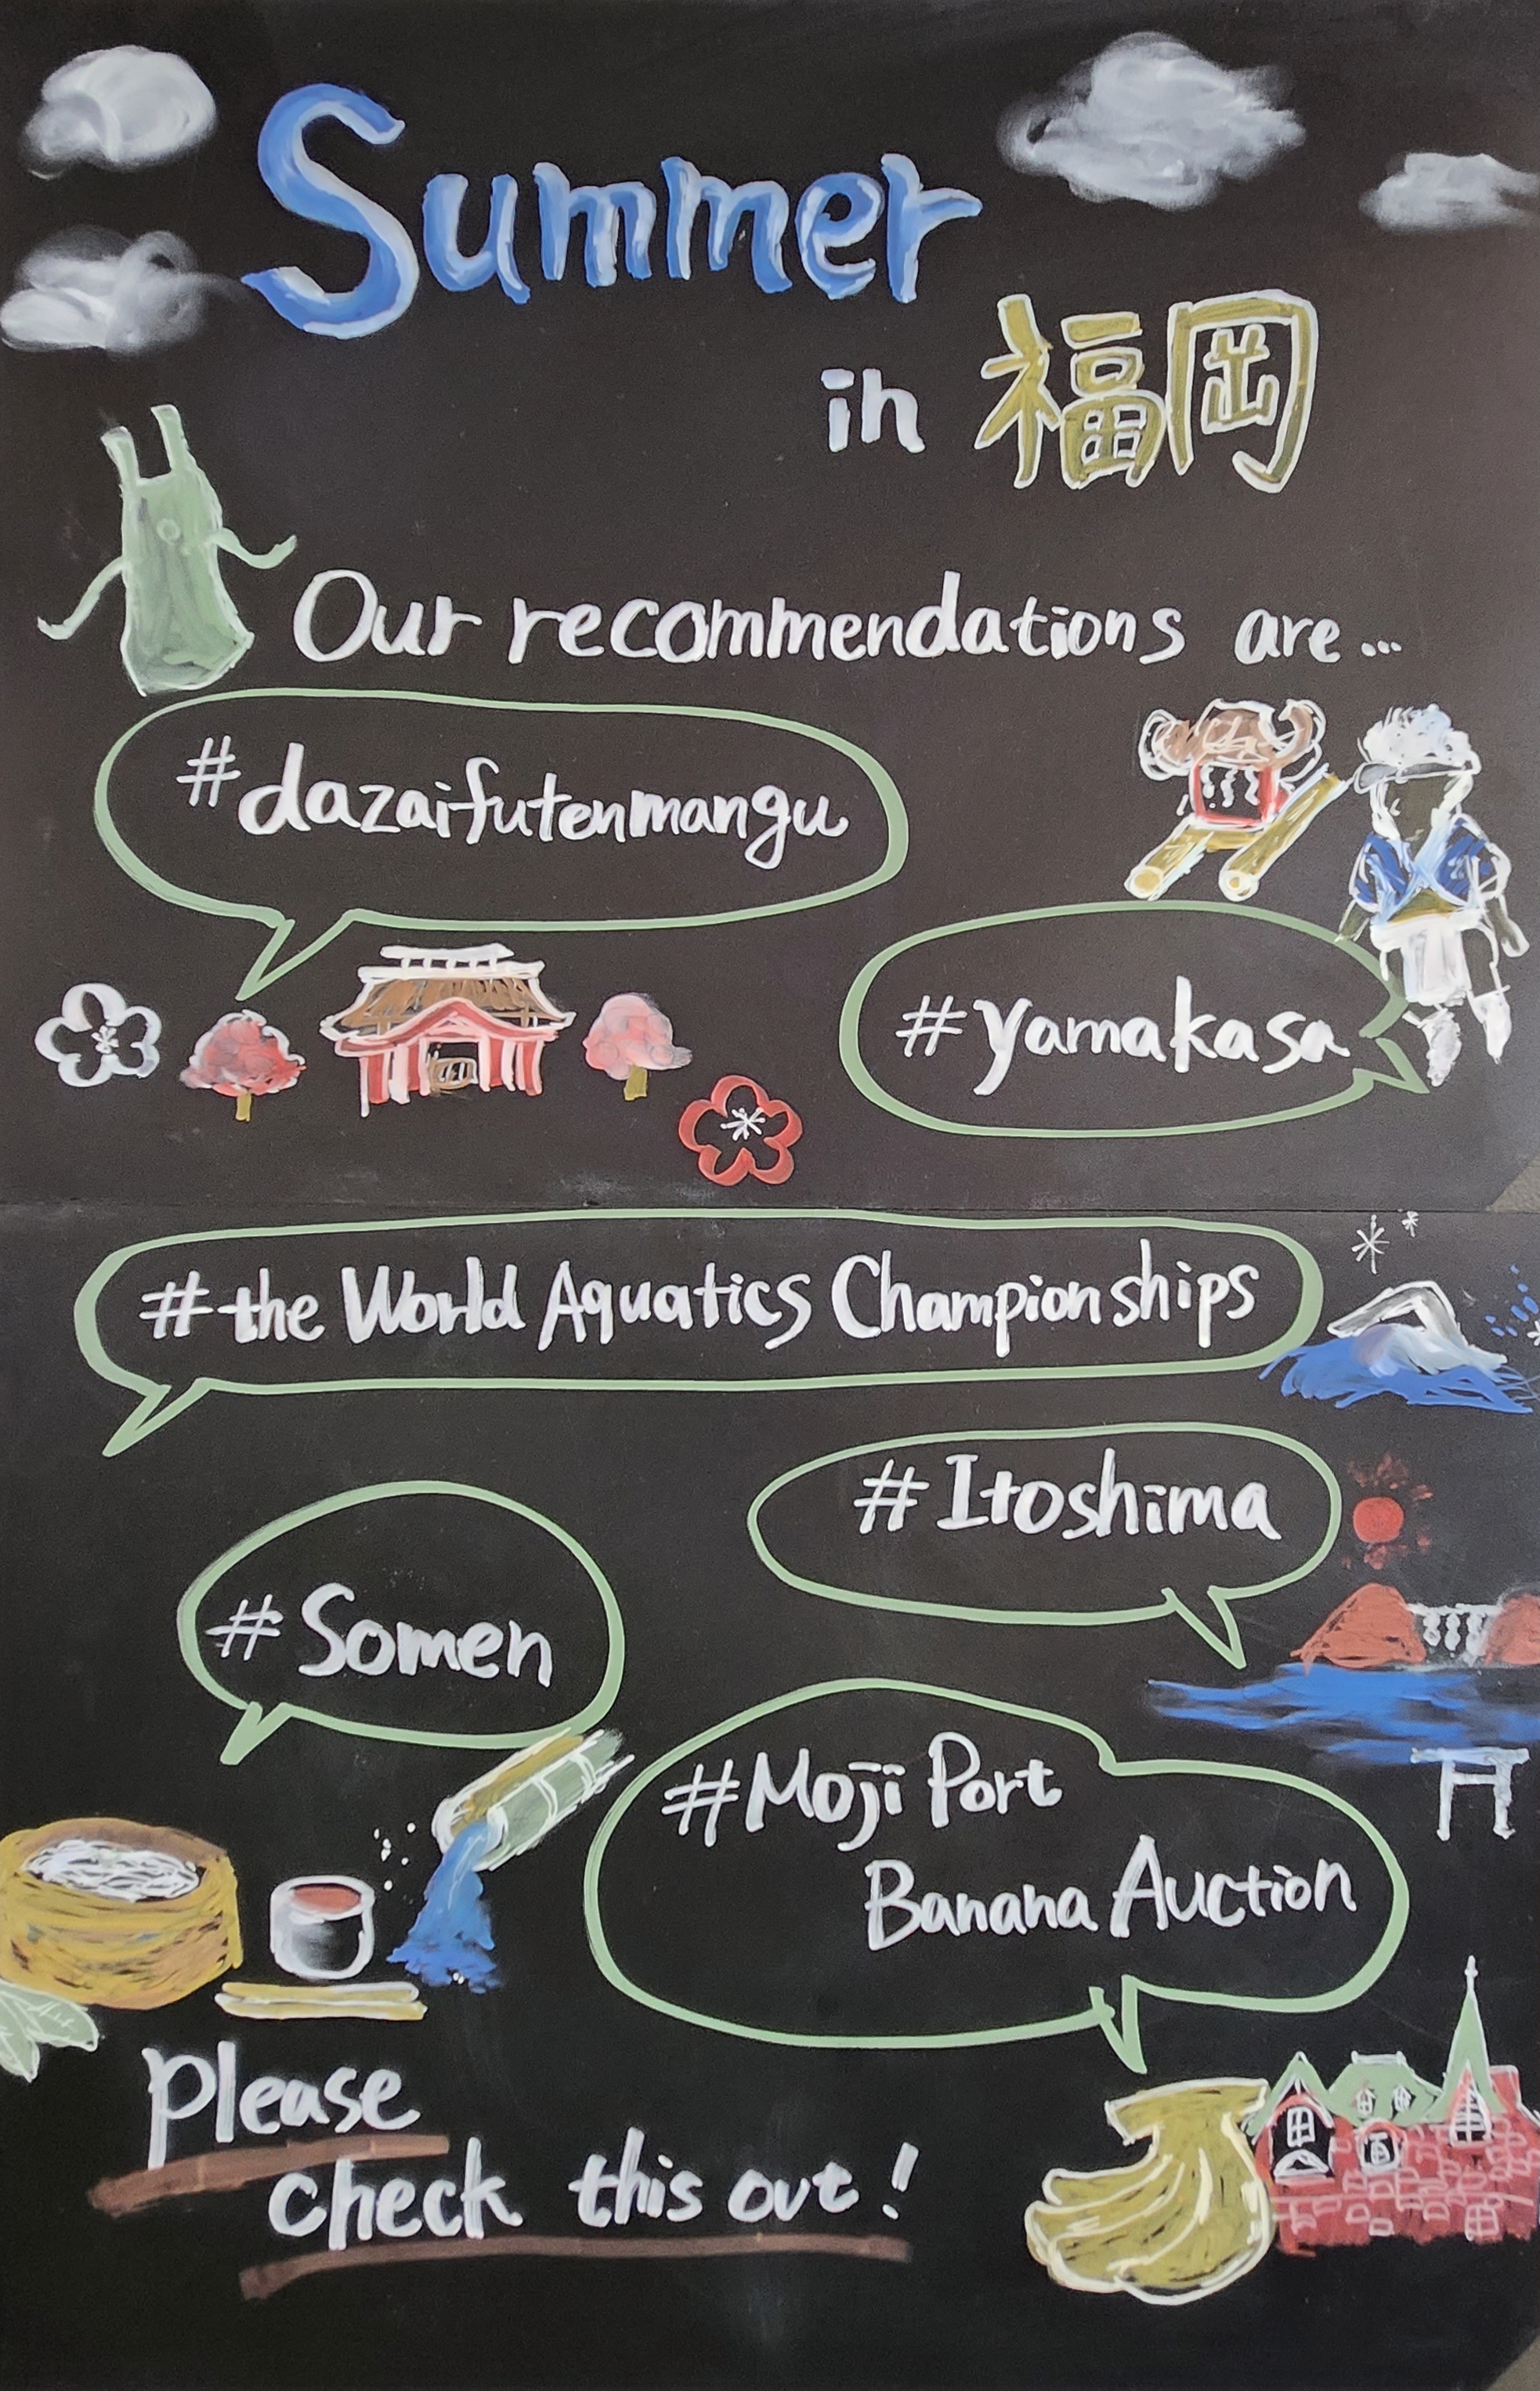 Summer
in 福岡
Our recommendations are...
#dazaifutenmangu
#yamakasa
#the World Aquatics Championships
#Itoshima
#Somen
#Moji Port
Banana Auction
Please
check this out!